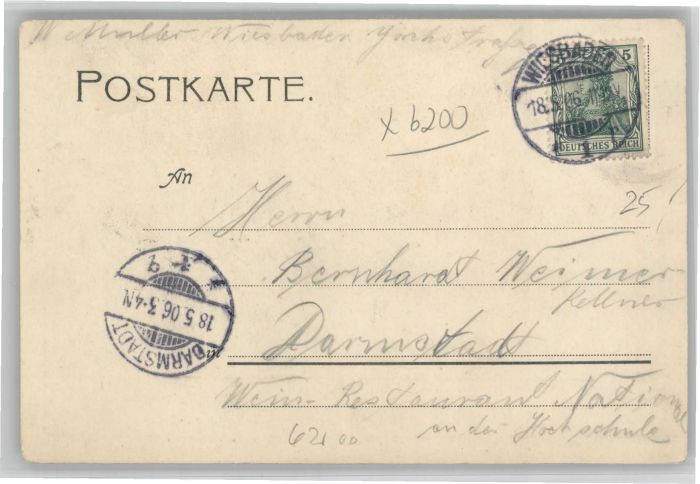 Müller Wiesbaden Yorkstraße
POSTKARTE.
WIESBADEN
18.5.06
1
5
DEUTSCHES REICH
x 6200
An
Herrn
25
Bernhardt Weimer
Kellner
1 b
18.5.06.3-4N
DARMSTADT
in
Darmstadt
Wein-Restaurant National
an der Hochschule
6200